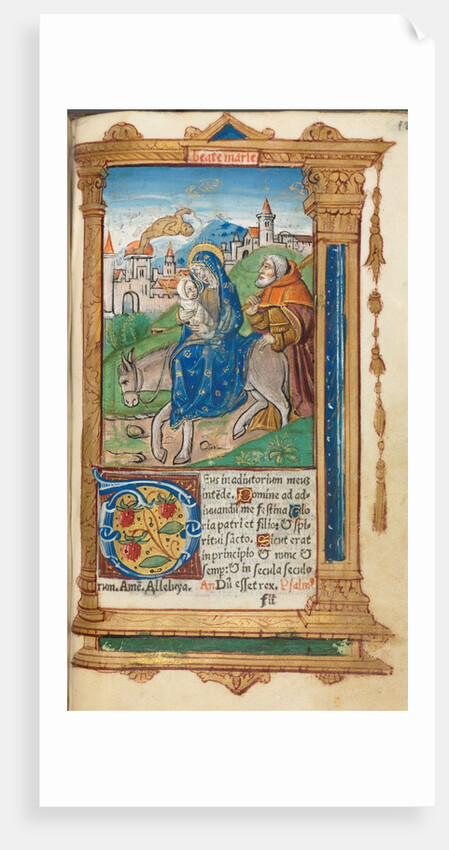 beate marie
Eus in adiutorium meuʒ
intēde. Domine ad ad-
iuuandū me festina Glo
ria patri et filio: & spi-
ritui sācto. Sicut erat
in principio & nunc &
semp: & in secula seculo
rum. Amē. Alleluya. An Dū esset rex. Psalmꝰ
fii